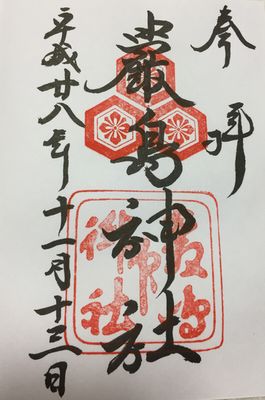 奉拝
嚴島神社
平成廿八年十一月十三日